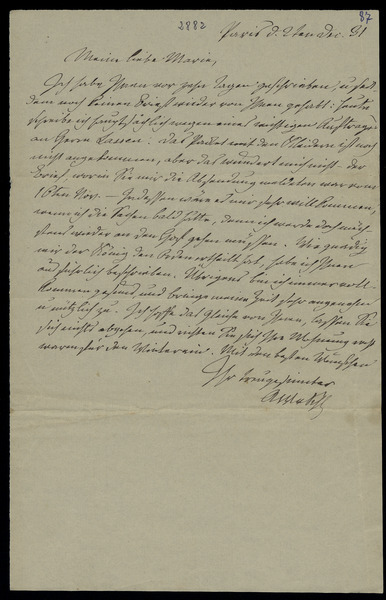 2882
87
Paris d. 2ten Dec. 31
Meine liebe Marie,
Ich habe Ihnen vor zehn Tagen geschrieben, u seit
dem noch keinen Brief wieder von Ihnen gehabt: heute
schreibe ich hauptsächlich wegen eines wichtigen Auftrages
an Herrn Lassen: Das Packet mit den Kleidern ist noch
nicht angekommen, aber das wundert mich nicht, der
Brief, worin Sie mir die Absendung meldeten war vom
16ten Nov. — Indessen wäre es mir sehr willkommen,
wenn ich die Sachen bald hätte, denn ich werde doch näch-
stens wieder an den Hof gehen müssen. Wie gnädig
mir der König den Orden ertheilt hat, habe ich Ihnen
ausführlich beschrieben. Übrigens bin ich immer voll-
kommen gesund und bringe meine Zeit sehr angenehm
u nützlich zu. Ich hoffe das Gleiche von Ihnen, lassen Sie
sich nichts abgehen, und richten Sie sich Ihre Wohnung recht
warm für den Winter ein. Mit den besten Wünschen
Ihr treugesinnter
AWvSchl